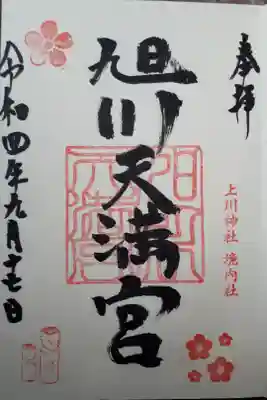 奉拝
上川神社 境内社
旭川天満宮
令和四年九月十七日